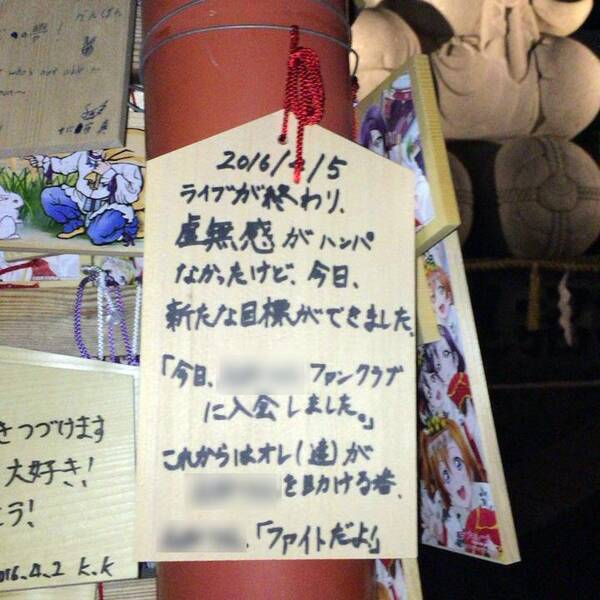 2016/4/5
ライブが終わり、
虚無感がハンパ
なかったけど、今日、
新たな目標ができました。
「今日、 ファンクラブ
に入会しました。」
これからはオレ(達)が
を助ける番、
、「ファイトだよ!」
きつづけます
大好き!
う!
2016.4.2 K.K